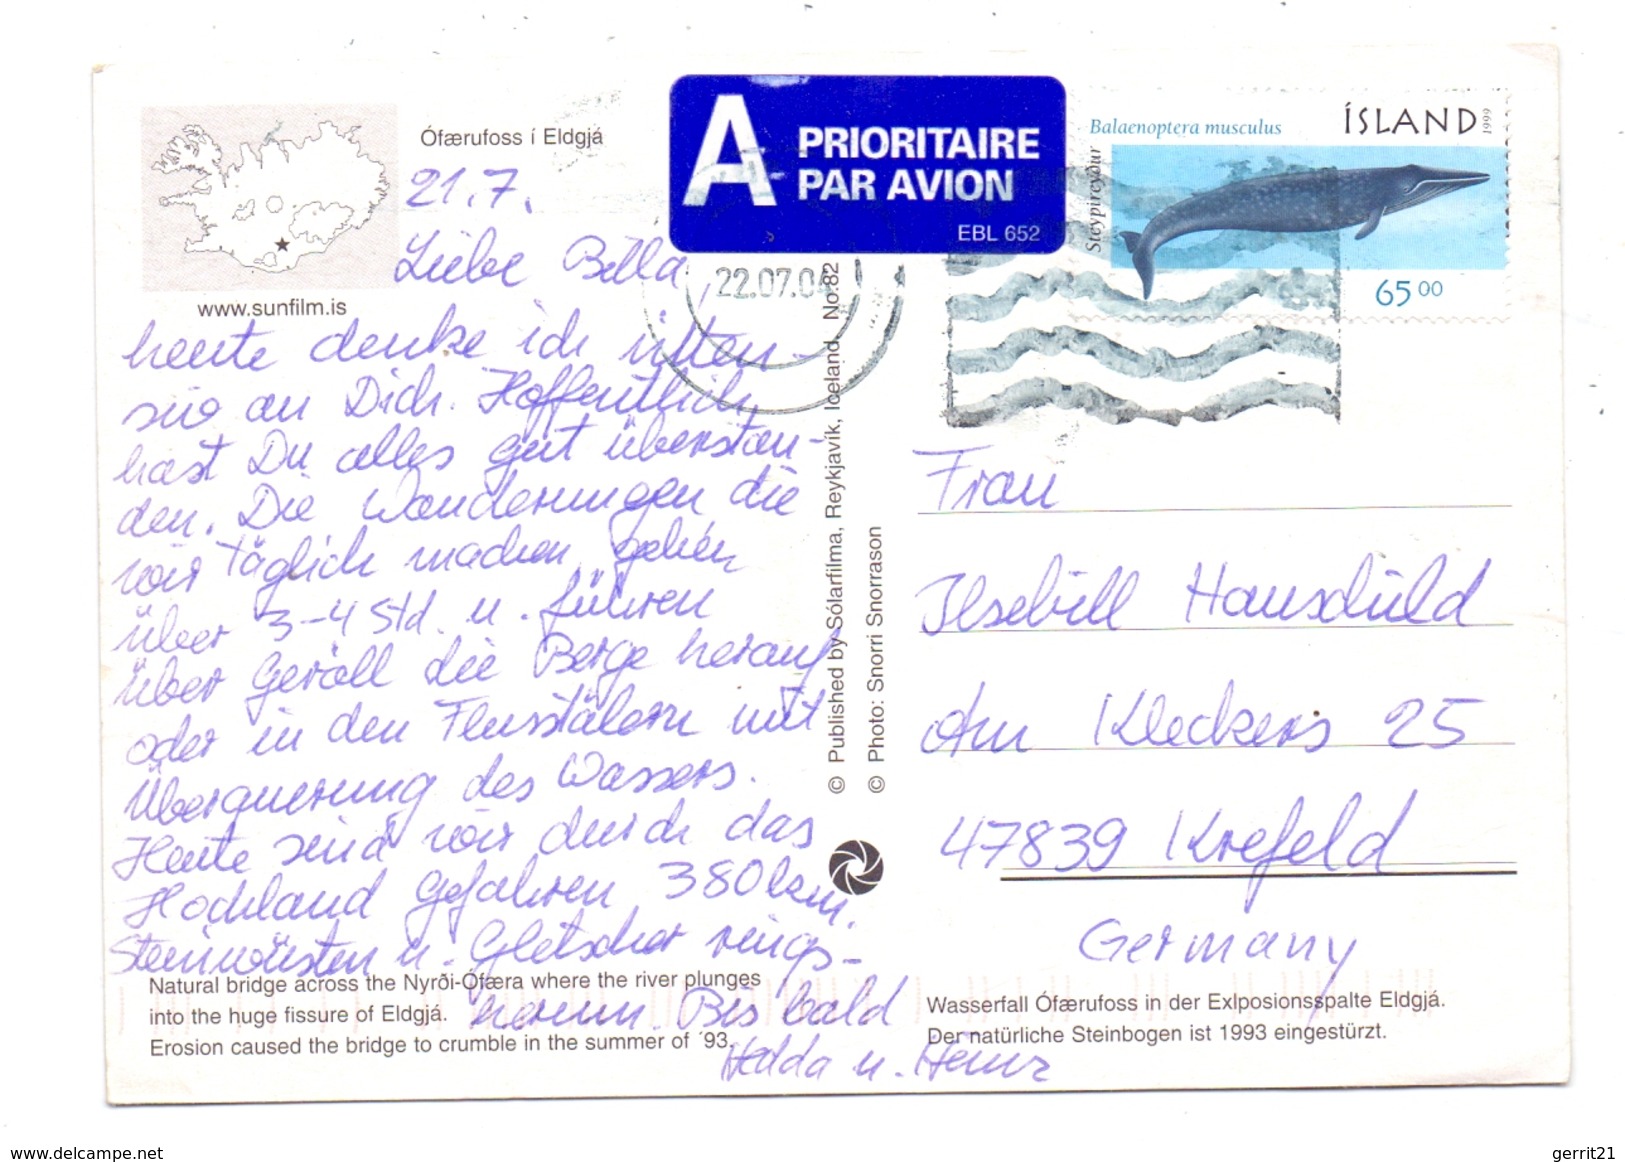 Ófærufoss í Eldgjá
www.sunfilm.is
A
PRIORITAIRE
PAR AVION
EBL 652
Balaenoptera musculus
ÍSLAND
1999
Steypireyður
65 00
22.07.0
21.7.
Liebe Billa,
heute denke ich inten-
siv an Dich. Hoffentlich
hast Du alles gut überstan-
den. Die Wanderungen die
wir täglich machen gehen
über 3-4 Std. u. führen
über Geröll die Berge herauf
oder in den Flusstälern mit
Überquerung des Wassers.
Heute sind wir durch das
Hochland gefahren 380 km.
Steinwüsten u. Gletscher rings-
herum. Bis bald
Hedda u. Heinz
© Published by Sólarfilma, Reykjavík, Iceland No.82
© Photo: Snorri Snorrason
Frau
Ilsebill Hauschild
Am Kleckers 25
47839 Krefeld
Germany
Natural bridge across the Nyrði-Ófæra where the river plunges
into the huge fissure of Eldgjá.
Erosion caused the bridge to crumble in the summer of ´93.
Wasserfall Ófærufoss in der Exlposionsspalte Eldgjá.
Der natürliche Steinbogen ist 1993 eingestürzt.
www.delcampe.net
gerrit21